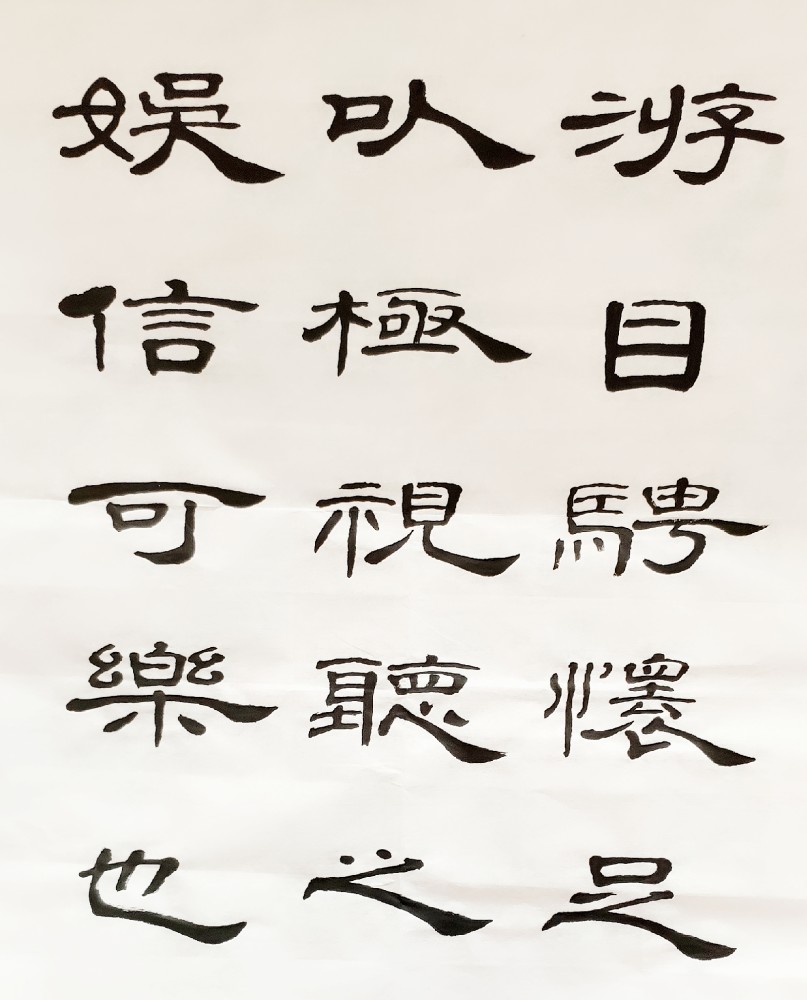 游目騁懷足
以極視聽之
娛信可樂也